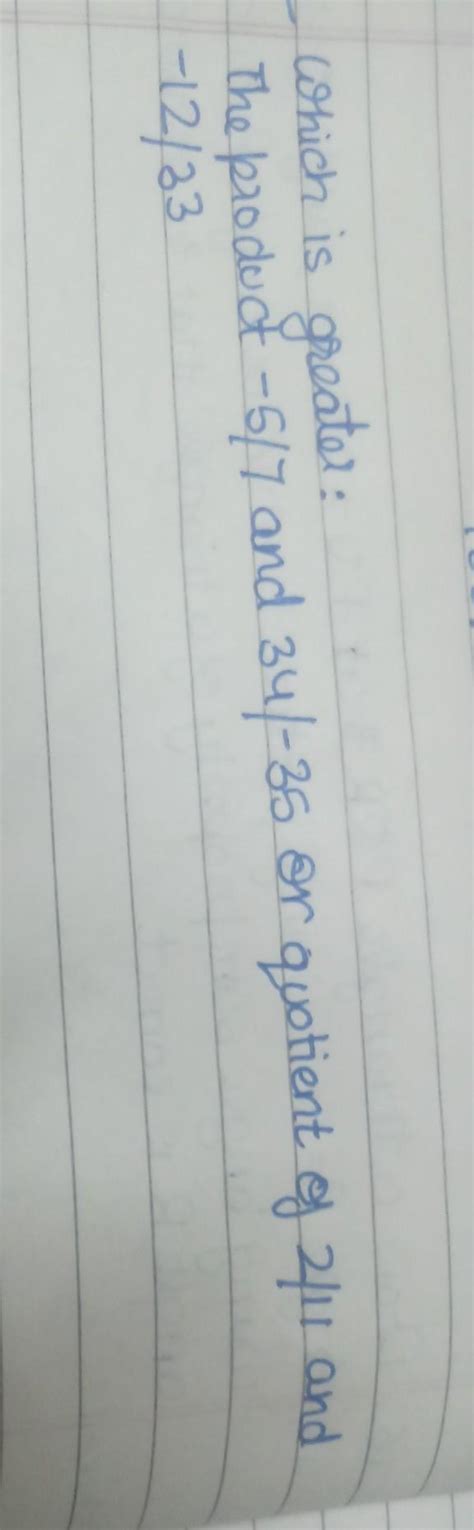 Which is greater:
The product -5/7 and 34/-35 or quotient of 2/11 and
-12/33